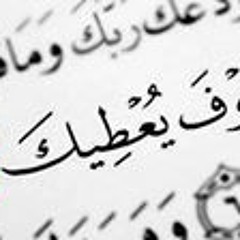 دعك ربك وما
وْفَ يُعْطِيكَ